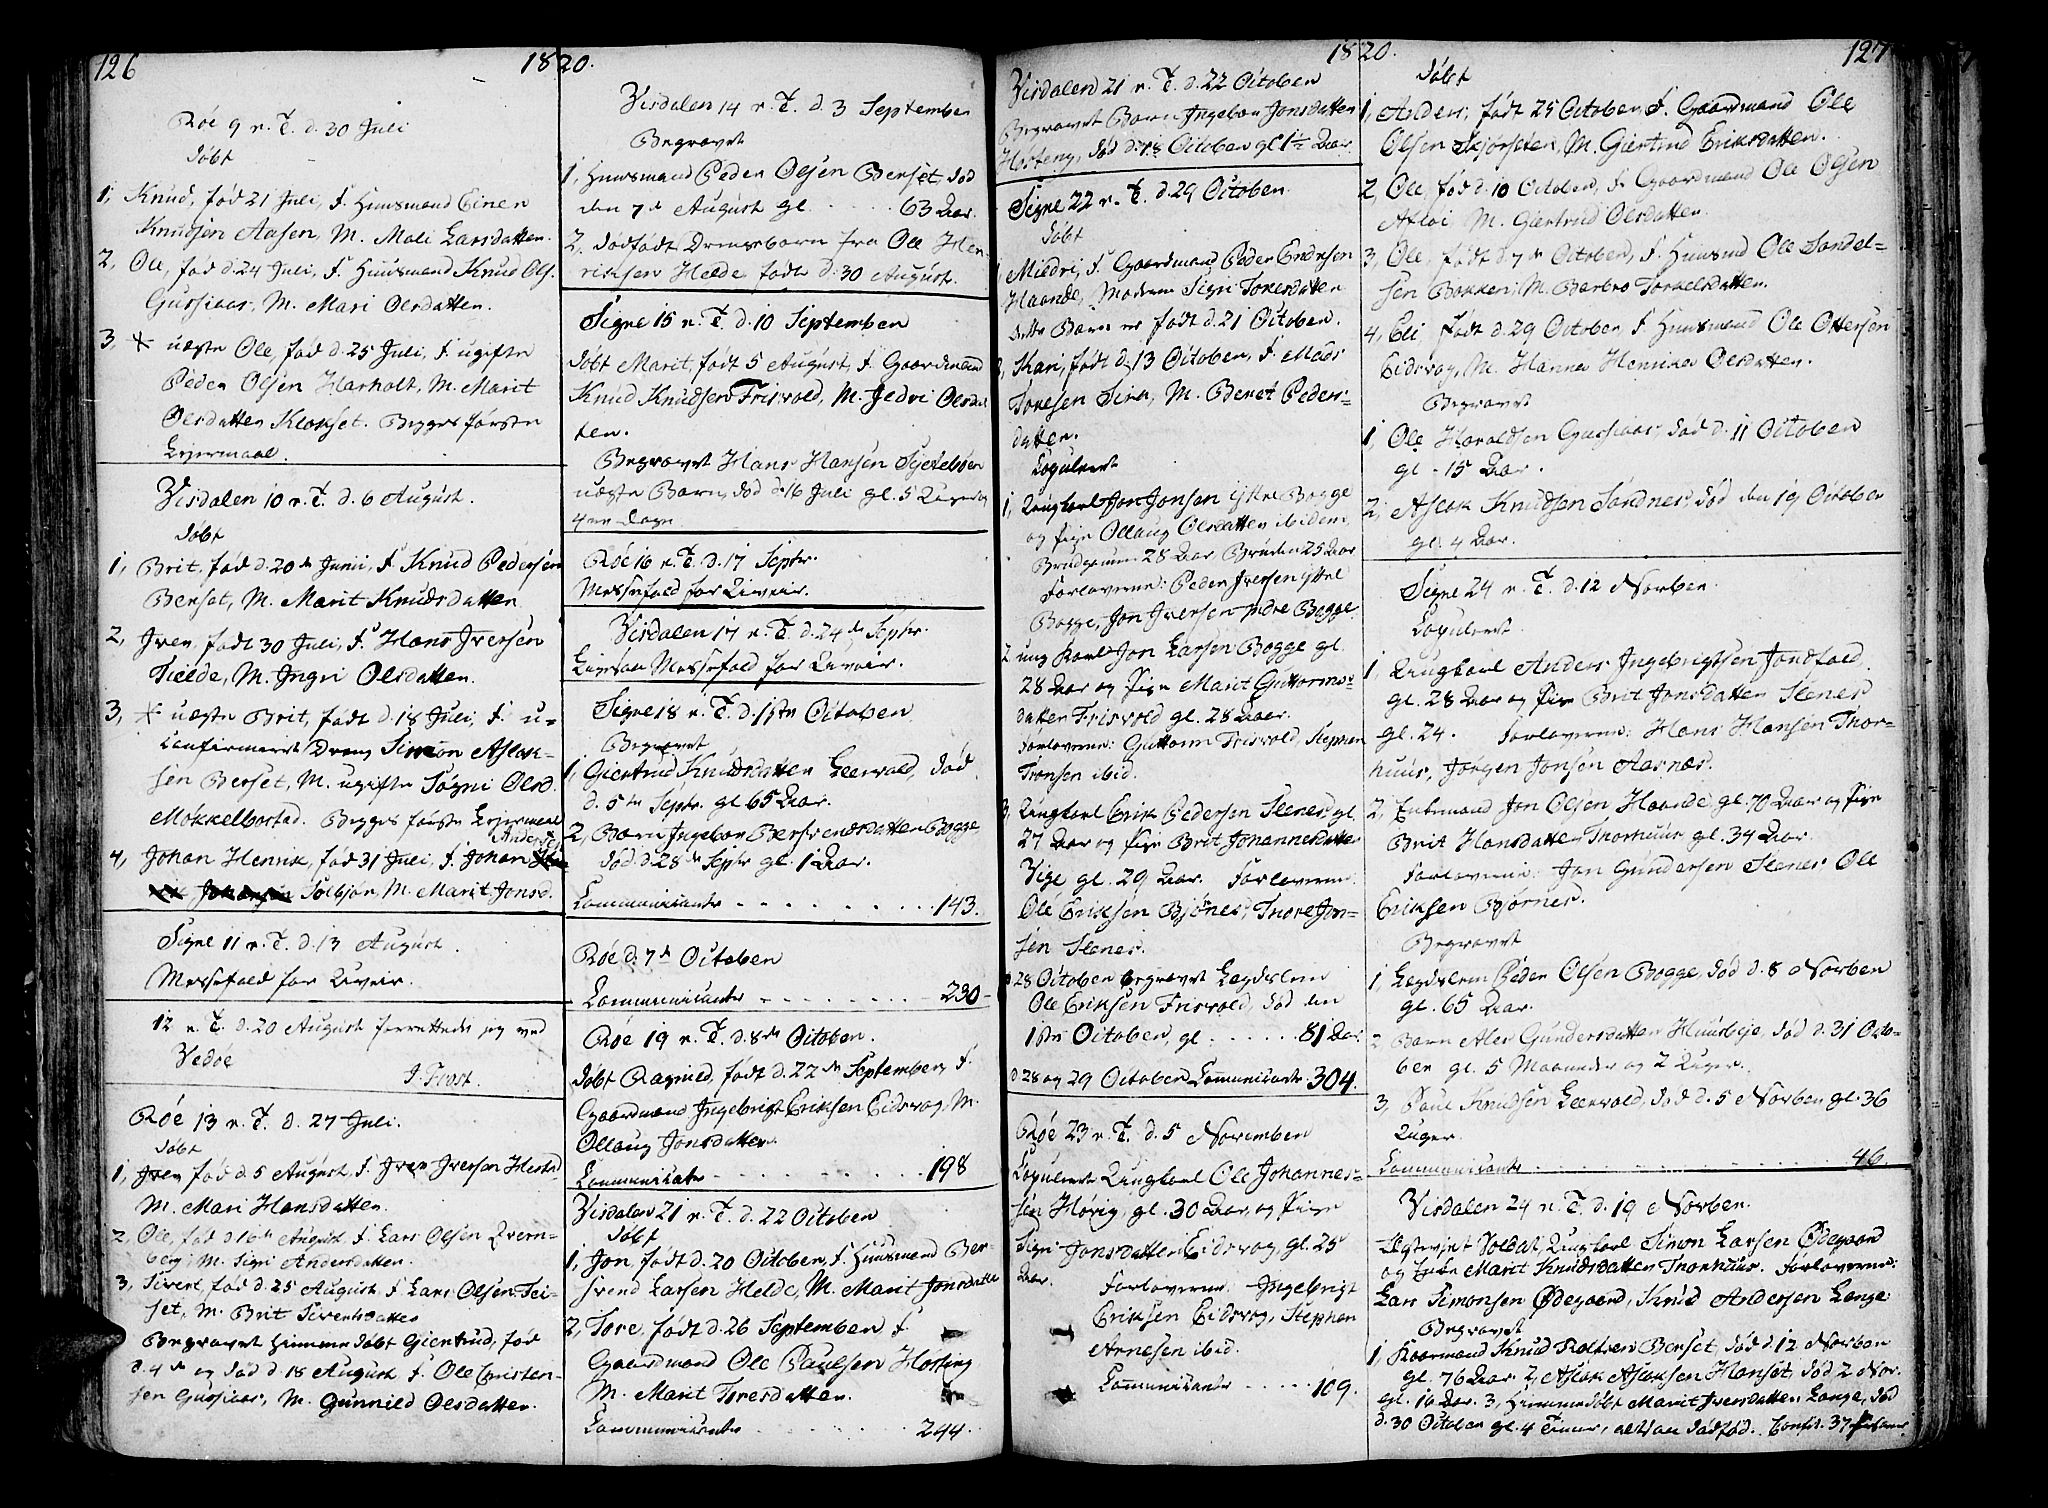 126
1820.
Røe 9 n. T. d. 30 Juli
døbt
1, Knud, fød 21 Juli, F. Huusmand Einer
Knudsen Aasen, M. Mali Larsdatter.
2, Ole, fød d. 24 Juli, F. Huusmand Knud Ols.
Gussiaas, M. Mari Olsdatter.
3 * uægte Ole, fød d. 25 Juli, F. ugifte
Peder Olsen Harholt, M. Marit
Olsdatter Klokset. Begges første
Leiermaal.
Visdalen 10 n. T. d. 6 August.
døbt
1, Brit, fød d. 20de Junii, F. Knud Pedersen
Berset, M. Marit Knudsdatter
2, Iver, født 30 Juli, F. Hans Iversen
Tielde, M. Ingri Olsdatter.
3, * uægte Brit, født d. 18 Juli, F. u-
confirmeret Dreng Simon Aslak-
sen Berset, M. ugifte Søgni Olsd.
Mokkelbostad. Begges første Leiermaal
Anders
4, Johan Henrik, fød 31 Juli, F. Johan
Solbjør, M. Marit Jonsd.
Signe 11 n. T. d. 13 August.
Messefald for Uveir.
12 n. T. d. 20 August forrettede jeg ved
Vedøe
J. Frost.
Røe 13 n. T. d. 27 Juli.
døbt
1, Iver fød d. 5 August, F. Iver Iversen Hestad
M. Mari Hansdatter.
2, Ole, fød d. 16de August F. Lars Olsen Qvern-
berg, M. Sigri Andersdatter.
3, Sivert, fød d. 25 August F. Lars Olsen Tei-
set, M. Brit Sivertsdatter
Begravet hiemmedøbt Giertrud, fød
d. 4de og død d. 18 August F. Ole Christen-
sen Gussiaas, M. Gunnild Olsdatter.
Visdalen 14 n. T. d. 3 September
Begravet
1, Huusmand Peder Olsen Berset, død
den 7de August gl. 63 Aar.
2, dødfødt Drengebarn fra Ole Hen-
riksen Helde født d. 30 August.
Signe 15 n. T. d. 10 September
døbt Marit, født 5 August, F. Gaardmand
Knud Knudsen Frisvold, M. Jedri Olsdat-
ten.
Begravet Hans Hansen
uægte Barn, død d. 16 Juli gl. 5 Uger og
4re Dage
Røe 16 n. T. d. 17 Septbr.
Messefald for Uveir.
Visdalen 17 n. T. d. 24de Septbr.
Messefald for Uveir.
Signe 18 n. T. d. 1ste October
Begravet
1, Giertrud Knudsdatter Leervold, død
d. 5te Septbr. gl 65 Aar.
2, Barn Ingebor Bersvendsdatter Bogge
død d. 28de Septbr gl. 1 Aar.
Communicanter 143.
Røe d. 7de October
Communicanter 230
Røe 19 n. T. d. 8de October.
døbt Ragnild, født d. 22de September, F.
Gaardmand Ingebrigt Eriksen Eidsvog, M.
Ollaug Jonsdatter.
Communicanter 198
Visdalen 21 n. T. d. 22 October
døbt
1, Jon, født d. 20 October, F. Huusmand Ber-
svend Larsen Helde, M. Marit Jonsdatter
2, Tore, født d. 26 September F.
Gaardmand Ole Paulsen Hosting
M. Marit Toresdatter.
Communicanter 244.
1820.
127
Visdalen 21 n. T. d. 22 October
Begravet Barn Ingebor Jonsdatter
død d. 18 October gl 1½ Aar.
Signe 22 n. T. d. 29 October
døbt
1 Miedri, F. Gaardmand Peder Endresen
Haande, Moderen Sigri Toresdatter
dette Barn er født d. 21 October.
2, Kari, født d. 13 October, F. Mads
Toresen Sira, M. Beret Peders-
datter.
Copuleret
1, Ungkarl Jon Jonsen Ytre Bogge
og Pige Ollaug Olsdatter ibidem,
Brudgom: 28 Aar Bruden 25 Aar
Forloverne: Peder Iversen Ytre
Bogge, Jon Iversen Indre Bogge
2 ung Karl Jon Larsen Bogge gl.
28 Aar og Pige Marit Guttorms-
datter Frisvold gl. 28 Aar.
Forloverne: Guttorm Frisvold, Stephen
Tronsen ibid.
3, Ungkarl Erik Pedersen Stenes gl.
27 Aar og Pige Brit Johannesdatter
Vige gl. 29 Aar. Forloverne
Ole Eriksen Bjørnes, Thore Jon-
sen Stenes.
d 28 October begravet Lægdslem
Ole Eriksen Frisvold, død den
1ste October, gl 81 Aar.
d 28 og 29 October Communicanter 304.
Røe 23 n. T. d. 5 November
Copuleret Ungkarl Ole Johannes-
sen Hørvig, gl. 30 Aar, og Pige
Sigri Jonsdatter Eidsvog, gl. 25
Aar. Forloverne: Ingebrigt
Eriksen Eidsvog, Stephan
Arnesen ibid.
Communicanter 109.
døbt
1, Anders, født 25 October, F. Gaardmand Ole
Olsen Skjørsetter, M. Giertrud Eriksdatter.
2, Ole, fød d. 10 October, F. Gaardmand Ole Olsen
M. Giertrud Olsdatter.
3, Ole, født d. 7de October, F. Huusmd Ole Sandel-
sen Bakken, M. Barbro Torkelsdatter.
4, Eli født d. 29 October F. Huusmand Ole Ottersen
Eidsvog, M. Hanna Henrika Olsdatter.
Begravet
1, Ole Haraldsen Gussiaas, død d. 11 October
gl. 15 Aar.
2, Aslak Knudsen Sandnes, død den 19 October
gl. 4 Aar.
Signe 24 n. T. d. 12 Novbr.
Copuleret.
1, Ungkarl Anders Ingebrigtsen Jordfald
gl. 28 Aar og Pige Brit Jonsdatter Stenes
gl. 24. Forloverne: Hans Hansen Thor-
huus, Jørgen Jonsen Aasnæs.
2, Enkemand Jon Olsen Haande, gl. 70 Aar og Pige
Brit Hansdatter Thorhuus gl. 34 Aar.
Forloverne: Jon Gundersen Stenes, Ole
Eriksen Bjørnes.
Begravet
1 Lægdslem Peder Olsen Bogge, død d. 8 Novber
gl. 65 Aar.
2 Barn Ales Gundersdatter Huusbye, død d. 31 Octo-
ber gl. 5 Maaneder og 2 Uger.
3, Paul Knudsen Leervold, død d. 5 Novber gl. 36
Uger.
Communicanter 46.
Visdalen 24 n. T. d. 19 Novber.
Soldat, Ungkarl Simon Larsen Ødegaard
og Marit Knudsdatter Thorhuus. Forloverne:
Lars Simonsen Ødegaard, Knud Andersen Lange.
Begravet
1, Kaarmand Knud Berset, død d. 12 Novber
gl. 76 Aar. 2, Aslak Aslaksen Hanset, død 2 Nov.
gl. 16 Aar. 3, hiemmedøbt Marit Iversdatter Lange, død
d. 30 October gl. 4 Timer, dødfød. 37